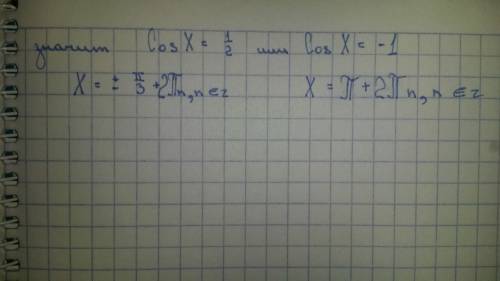 значит Cos X = 1/2 или Cos X = -1
X = ± π/3 + 2πn, n ∈ z X = π + 2πn, n ∈ z